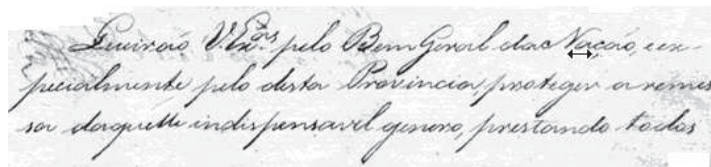 Queiraõ V. Exas. pelo Bem Geral da Naçaõ, e es-
pecialmente pelo desta Provincia, proteger a remes
sa daquelle indispensavel genero, prestando todas